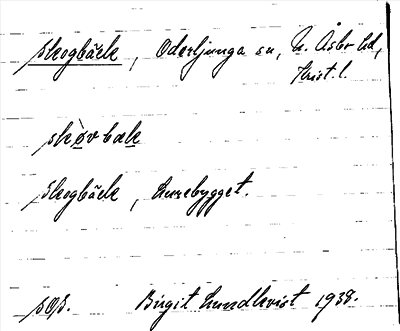 Skogbäck, Oderljunga sn, N. Åsbo hd,
Krist. l.
skòvbæk
Skogbäck, Lursbygget.
Birgit Lundkvist 1938.